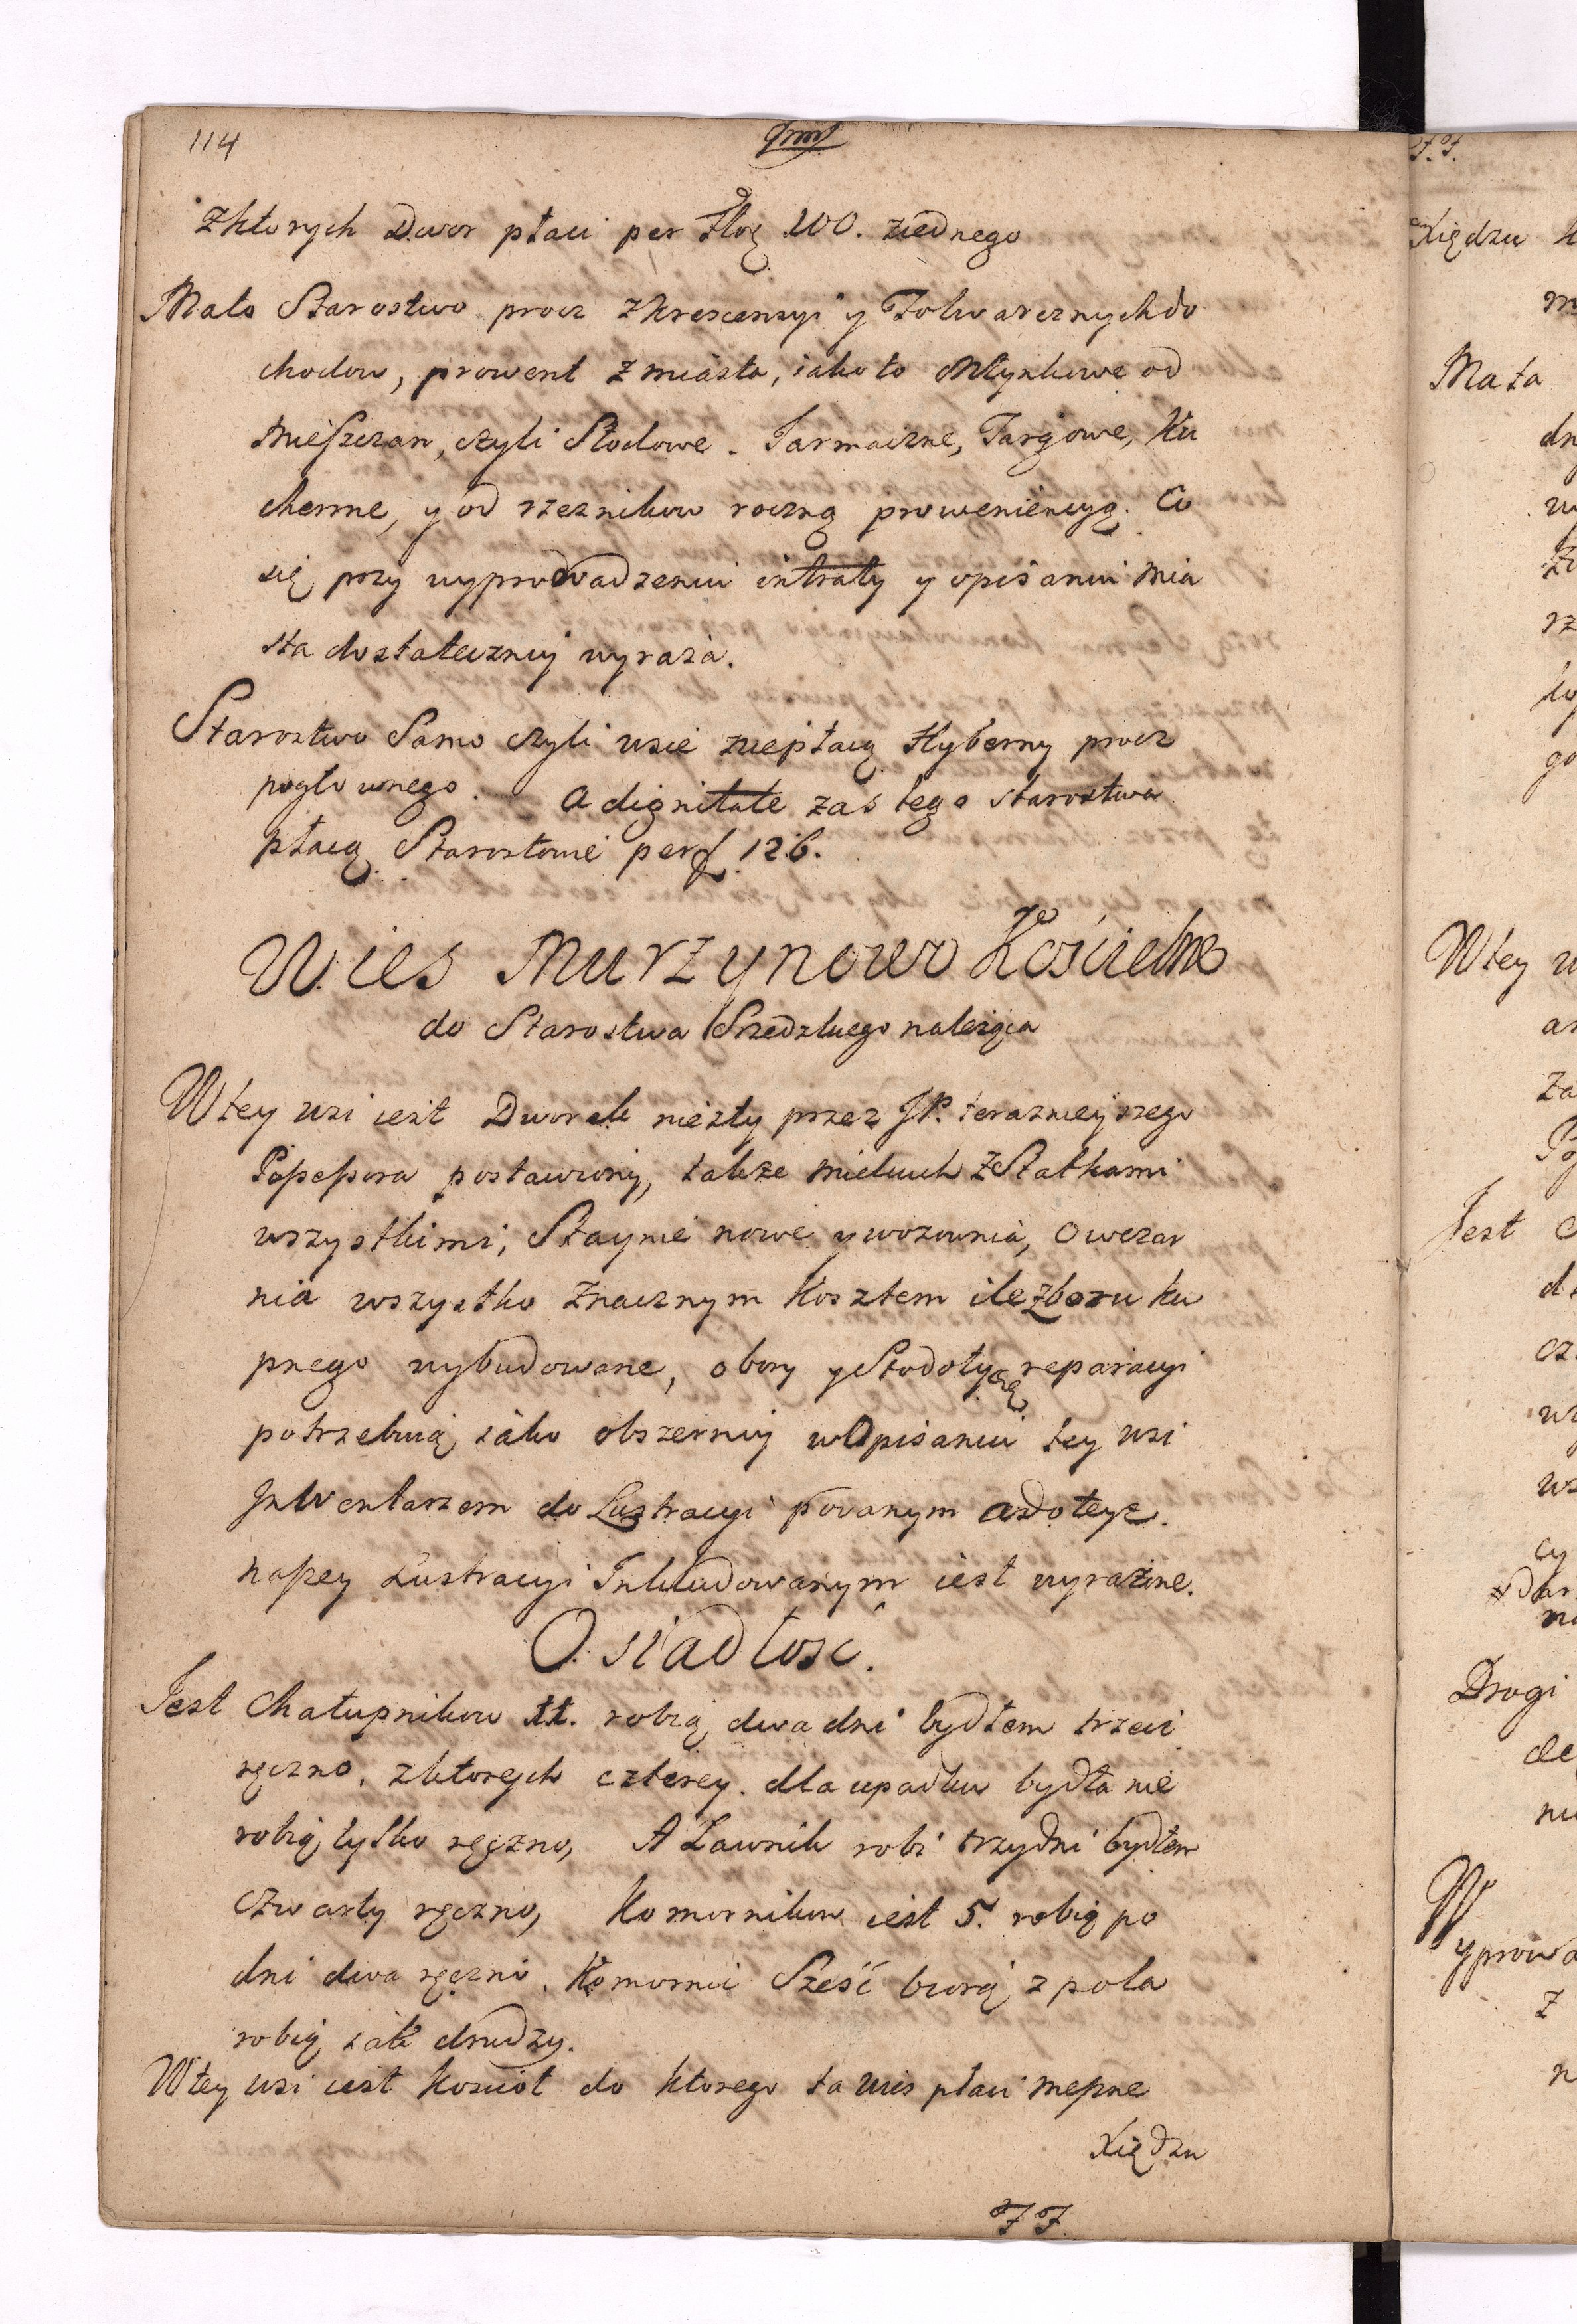 114
zktorych Dwor płaci per Złoṫ 100. ziednego
Mato Starostwo procz zkrescensyi y Folwarcznych do
chodow, prowent z miasta, iako to Młynkowe od
Mieszczan, czyli Słodowe. Jarmaczne, Targowe, Ku
chenne, y od rzeznikow roczną prowenięcyą. Co
się przy wyprowadzeniu intraty y opisaniu Mia
sta dostateczniey wyraża.
Starostwo Samo czyli wsie niepłacą Hyberny procz
pogłownego. A dignitate zaś tego starostwa
płacą Starostowie per f 126.
Wies Murzynowo Kościelne
do Starostwa Srzedzkiego należąca
Wtey wsi iest Dworek niezły przez JP. teraznieyszego
Possessora postawiony, także mielcuch zStatkami
wszystkimi, Staynie nowe y wozownia, Owczar
nia wszystko znacznym kosztem ile zboru ku
pnego wybudowane, obory y Stodoły reparacyi
potrzebuią iako obszerniy wOpisaniu tey wsi
Inwentarzem do Lustracyi podanym adoteyż
naszey Lustracyi Inkludowanym iest wyrażone.
Osiadłość.
Jest Chałupnikow 11. robią dwa dni bydłem trzeci
ręczno, zktorych czterey dla upadku bydła nie
robią tylko ręczno, A Ławnik robi trzy dni bydłem
czwarty ręczno, Komornikow iest 5. robią po
dni dwa ręczno. Komornic Sześć biorą z pola
robią iak drudzy.
Wtey wsi iest Kosciół do ktorego ta wies płaci meszne
Xiędzu
FF